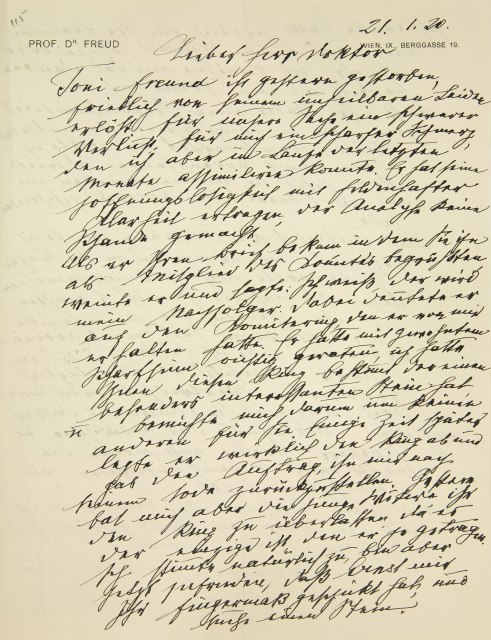 115
21. 1. 20.
PROF. Dr FREUD
WIEN, IX., BERGGASSE 19.
Lieber Herr Doktor
Toni Freund ist gestern gestorben,
friedlich von seinem unheilbaren Leiden
erlöst. Für unsere Sache ein schwerer
Verlust, für mich ein scharfer Schmerz,
den ich aber im Laufe der letzten
Monate assimiliren konnte. Er hat seine
Hoffnungslosigkeit mit heldenhafter
Klarheit ertragen, der Analyse keine
Schande gemacht.
Als er Ihren Brief bekam in dem Sie ihn
als Mitglied des Comités begrüßten
weinte er und sagte: der wird
mein Nachfolger. Dabei deutete er
auf den Ring den er von mir
erhalten hatte. Er hatte mit gewohntem
Scharfsinn richtig geraten, ich hatte
Ihnen diesen Ring bestimmt der einen
besonders interessanten Stein hat
u bemühte mich darum um keinen
anderen für Sie. Einige Zeit später
legte er wirklich den Ring ab und
gab den Auftrag, ihn mir nach
seinem Tode zurückzustellen. Gestern
bat mich aber die junge Witwe ihr
den Ring zu überlassen, da es
der einzige ist den er je getragen.
Ich stimmte natürlich zu, bin aber
jetzt zufrieden, daß mir
Ihr Fingermaß geschickt hat, und
suche einen Stein.